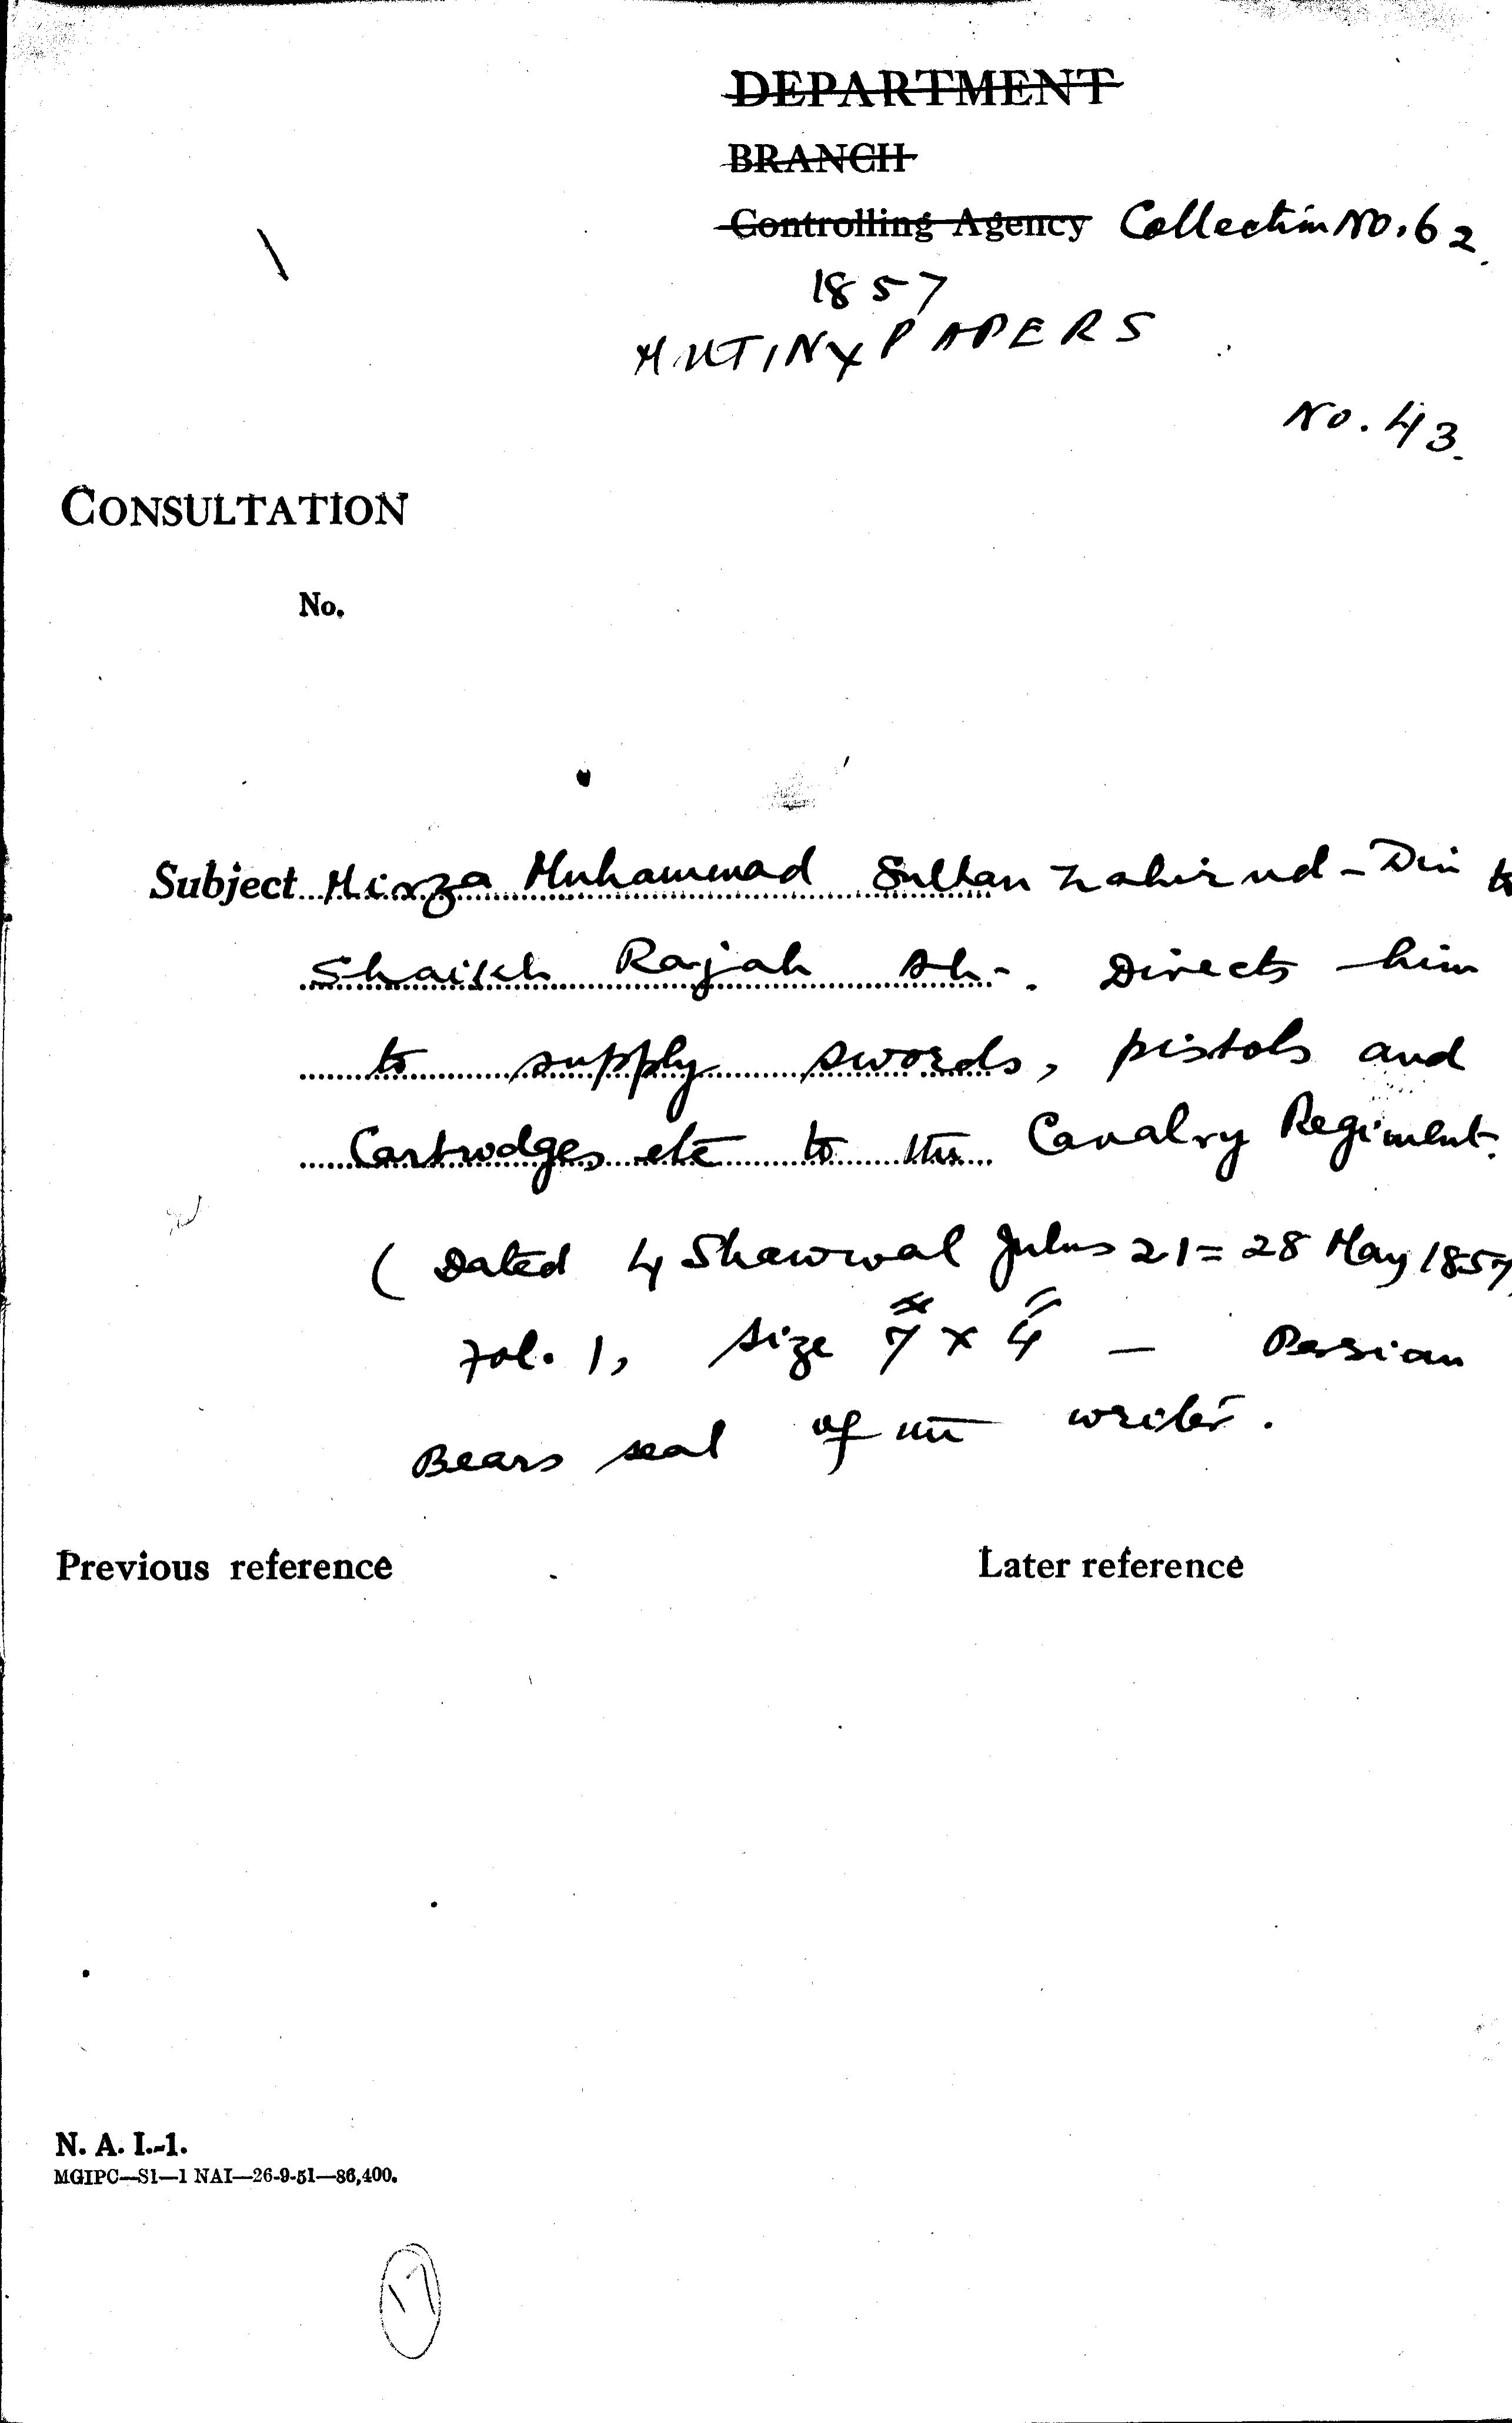 DEPARTMENT
BRANCH
Controlling Agency Collection No. 62
1857
MUTINY PAPERS
No. 43
CONSULTATION
No.
Subject Mirza Muhammad Sultan Zahir ud-Din to
Shaikh Rajab Ali. Directs him
to supply swords, pistols and
Cartridges etc to the Cavalry Regiment.
( Dated 4 Shawwal Julus 21 = 28 May 1857
Fol. 1, size 7" x 4" — Persian
Bears seal of the writer.
Previous reference
Later reference
N. A. I.-1.
MGIPC—S1—1 NAI—26-9-51—86,400.
17